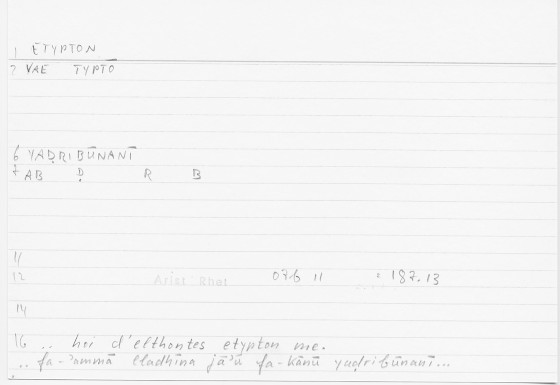 1 ETYPTON
2 VAE TYPTO
6 YAḌRIBŪNANĪ
7 AB Ḍ R B
11
12 Arist Rhet 076 11 : 187.13
14
16 .. hoi d'elthontes etypton me.
.. fa-'ammā lladhīna jā'ū fa-kānū yaḍribūnanī...